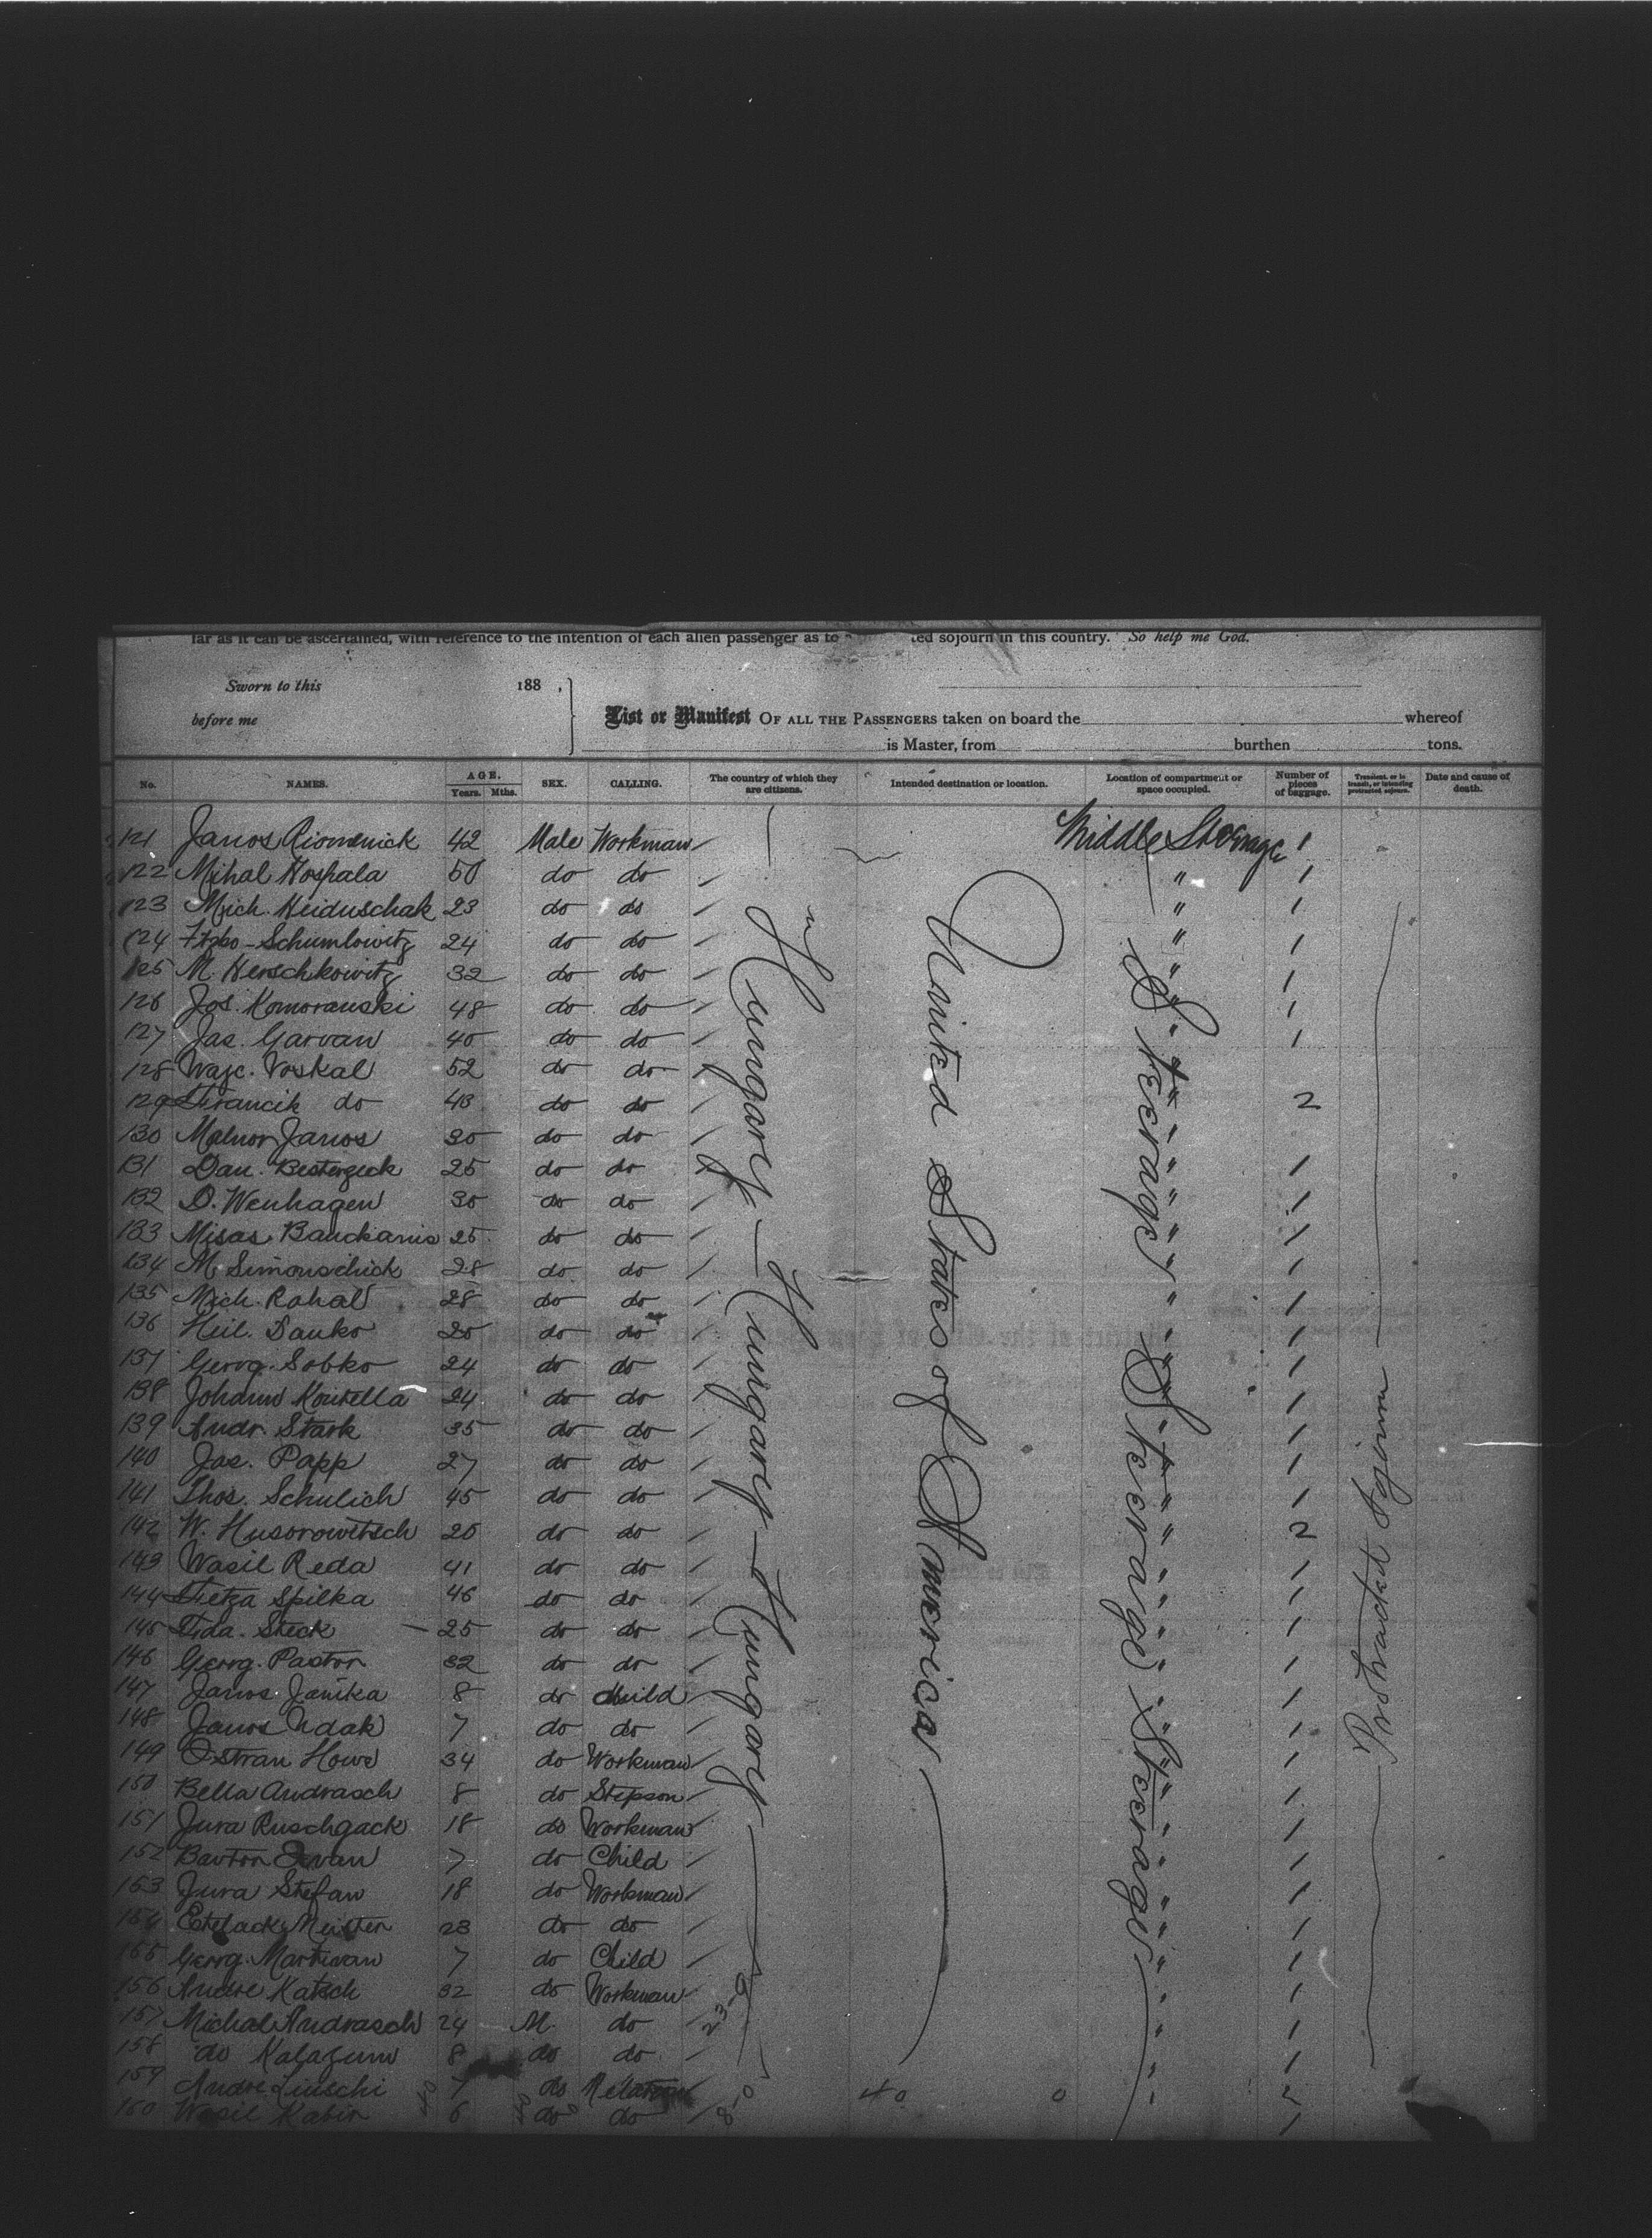 far as it can be ascertained, with reference to the intention of each alien passenger as to ted sojourn in this country. So help me God.
Sworn to this 188 .
before me
List or Manifest OF ALL THE PASSENGERS taken on board the whereof
is Master, from burthen tons.
No. NAMES. AGE. Years. Mths. SEX. CALLING. The country of which they are citizens. Intended destination or location. Location of compartment or space occupied. Number of pieces of baggage. Transient, or in transit, or intending protracted sojourn. Date and cause of death.
121 Janos 42 Male Workman Middle Steerage 1
122 Mihal Hospala 50 do do " 1
123 Mich. Heiduschak 23 do do " 1
124 Schumlowitz 24 do do " 1
125 M. Herschkowitz 32 do do " 1
126 Jos. Komoranski 48 do do " 1
127 Jas. Garvan 40 do do " 1
128 Wajc. Voskal 52 do do "
129 Francik do 43 do do " 2
130 Janos 30 do do "
131 Dan. 25 do do " 1
132 D. Wenhagen 30 do do " 1
133 Misas 25 do do " 1
134 M. Simonschick 28 do do " 1
135 Mich. Rahal 28 do do " 1
136 Danko 25 do do " 1
137 Georg. Sobko 24 do do " 1
138 Johann 24 do do " 1
139 Andr. Stark 35 do do " 1
140 Jas. Papp 27 do do " 1
141 Thos. Schulich 45 do do " 1
142 W. Husorowitsch 20 do do " 2
143 Wasil Reda 41 do do " 1
144 Spilka 46 do do " 1
145 Steck 25 do do " 1
146 Georg. Pastor 32 do do " 1
147 Janos Janika 8 do Child " 1
148 Janos Udak 7 do do " 1
149 Howe 34 do Workman " 1
150 Bella Andrasch 8 do Stepson " 1
151 Jura Ruschgack 18 do Workman " 1
152 7 do Child " 1
153 Jura Stefan 18 do Workman " 1
154 23 do do " 1
155 Georg. Martivan 7 do Child " 1
156 Andre Katsch 32 do Workman " 1
157 Michal Andrasch 24 M. do " 1
158 do 8 do do " 1
159 Andre 7 do "
160 Wasil Kabir 6 do do 1
Hungary — Hungary — Hungary
United States of America
Steerage Steerage Steerage
Protracted Sojourn